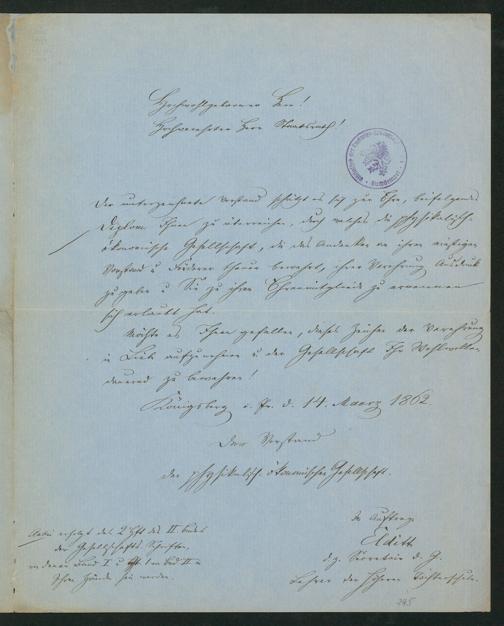 Hochwohlgeborener Herr!
Hochverehrter Herr Staatsrath!
Der unterzeichnete Vorstand schätzt es sich zur Ehre, beifolgendes
Diplom Ihnen zu überreichen, durch welches die physikalisch-
ökonomische Gesellschaft, die das Andenken an ihren einstigen
Vorstand u Förderer theuer bewahrt, ihrer Verehrung Ausdruck
zu geben u Sie zu ihrem Ehrenmitgliede zu ernennen
sich erlaubt hat.
Möchte es Ihnen gefallen, dieses Zeichen der Verehrung
in Liebe aufzunehmen u der Gesellschaft Ihr Wohlwollen
dauernd zu bewahren!
Königsberg i. Pr. d. 14. Maerz 1862.
Der Vorstand
der physikalisch-ökonomischen Gesellschaft.
Im Auftrage
Elditt
d. Secretair d. G.
Lehrer der höheren Töchterschule.
erfolgt das 2 Hft des II. Bandes
der Gesellschafts-Schriften,
deren Band I u Hft. 1 von Bd II in
Ihren Händen sein werden.